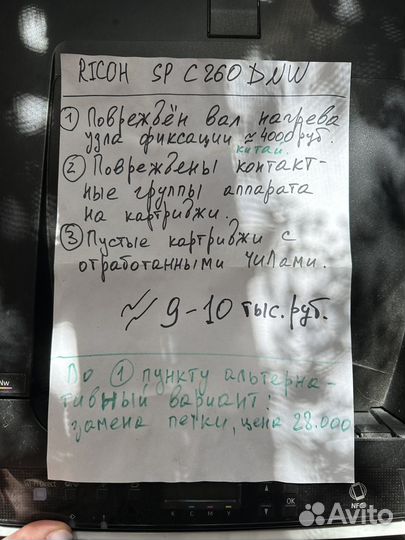 RICOH SP C260DNW
① Повреждён вал нагрева
узла фиксации ≈ 4000 руб.
китай.
② Повреждены контакт-
ные группы аппарата
на картриджи.
③ Пустые картриджи с
отработанными чипами.
≈ 9-10 тыс. руб.
По ① пункту альтерна-
тивный вариант:
замена печки, цена 28.000
Nw
OK
C K M Y
NFC
Avito